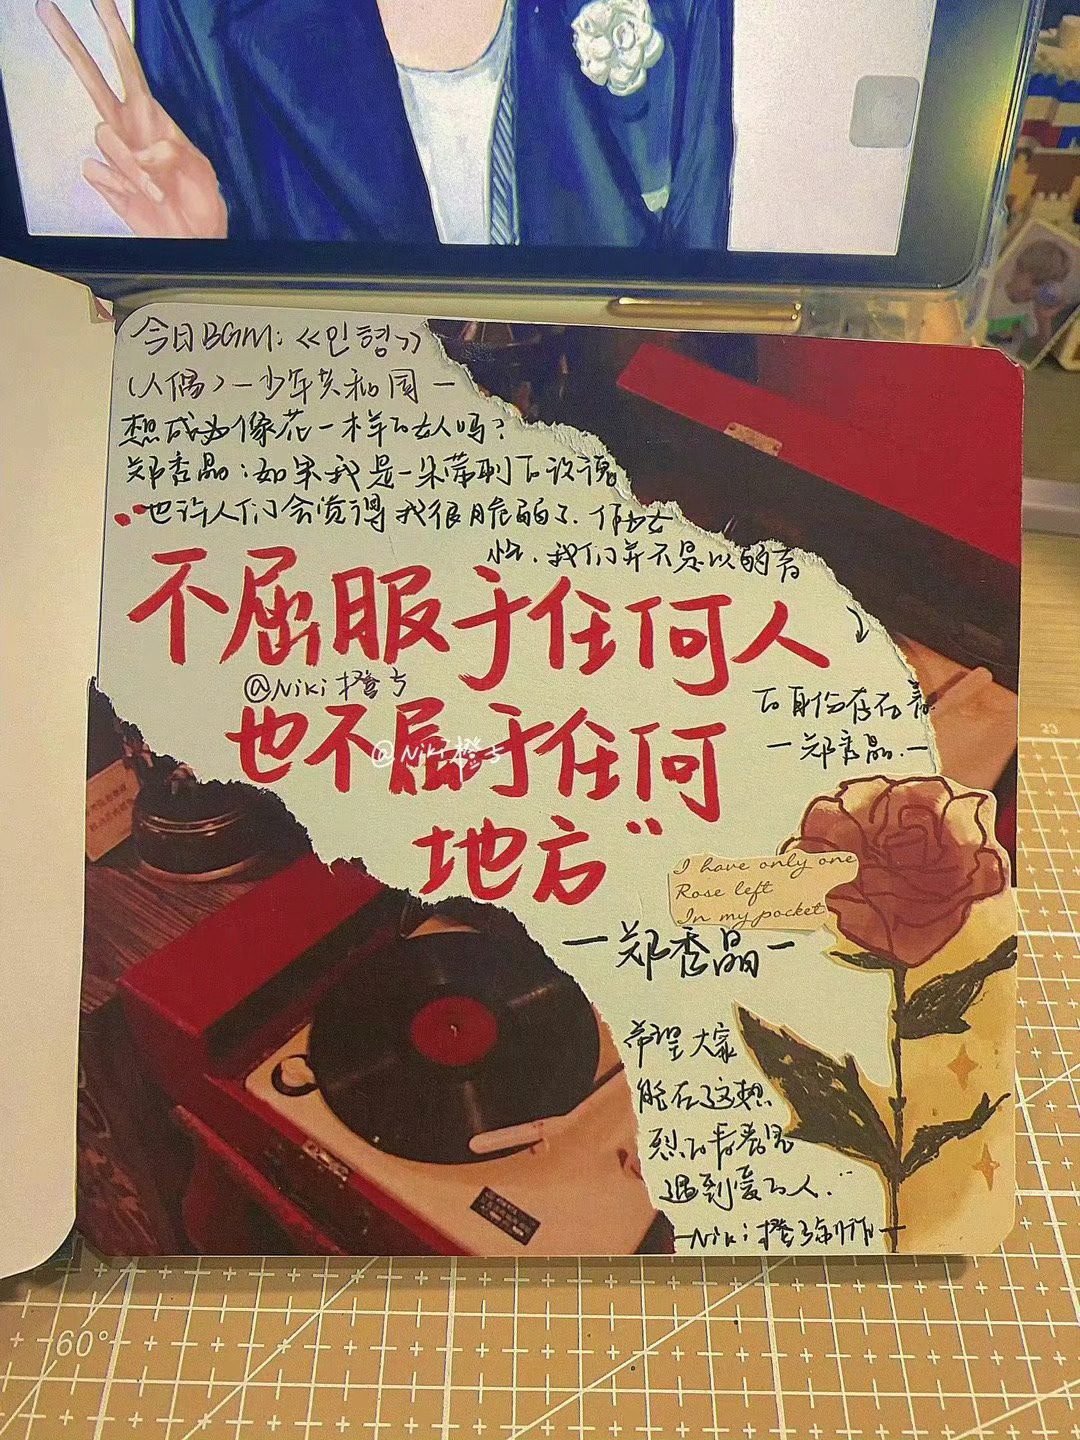 今日BGM:《인형》
(人偶)—少年共和国—
想成为像花一样的女人吗?
郑秀晶:如果我是一朵带刺的玫瑰
也许人们会觉得我很脆弱了. 作为女
性. 我们并不是以的弱
的身份存在着
—郑秀晶.—
“不屈服于任何人
@Niki橙子
也不属于任何
@Niki橙子
地方”
I have only one
Rose left
In my pocket
—郑秀晶—
希望大家
能在这热
烈的青春里
遇到爱的人.
—Niki橙子制作—
60°
23